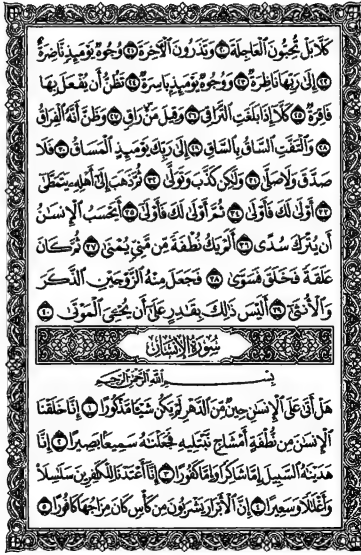 كَلَّا بَلْ تُحِبُّونَ ٱلْعَاجِلَةَ ٢٠ وَتَذَرُونَ ٱلْءَاخِرَةَ ٢١ وُجُوهٌ يَوْمَئِذٍ نَّاضِرَةٌ
٢٢ إِلَىٰ رَبِّهَا نَاظِرَةٌ ٢٣ وَوُجُوهٌ يَوْمَئِذٍۭ بَاسِرَةٌ ٢٤ تَظُنُّ أَن يُفْعَلَ بِهَا
فَاقِرَةٌ ٢٥ كَلَّآ إِذَا بَلَغَتِ ٱلتَّرَاقِىَ ٢٦ وَقِيلَ مَنْ رَاقٍ ٢٧ وَظَنَّ أَنَّهُ ٱلْفِرَاقُ
٢٨ وَٱلْتَفَّتِ ٱلسَّاقُ بِٱلسَّاقِ ٢٩ إِلَىٰ رَبِّكَ يَوْمَئِذٍ ٱلْمَسَاقُ ٣٠ فَلَا
صَدَّقَ وَلَا صَلَّىٰ ٣١ وَلَٰكِن كَذَّبَ وَتَوَلَّىٰ ٣٢ ثُمَّ ذَهَبَ إِلَىٰٓ أَهْلِهِۦ يَتَمَطَّىٰٓ
٣٣ أَوْلَىٰ لَكَ فَأَوْلَىٰ ٣٤ ثُمَّ أَوْلَىٰ لَكَ فَأَوْلَىٰٓ ٣٥ أَيَحْسَبُ ٱلْإِنسَٰنُ
أَن يُتْرَكَ سُدًى ٣٦ أَلَمْ يَكُ نُطْفَةً مِّن مَّنِىٍّ يُمْنَىٰ ٣٧ ثُمَّ كَانَ
عَلَقَةً فَخَلَقَ فَسَوَّىٰ ٣٨ فَجَعَلَ مِنْهُ ٱلزَّوْجَيْنِ ٱلذَّكَرَ
وَٱلْأُنثَىٰٓ ٣٩ أَلَيْسَ ذَٰلِكَ بِقَٰدِرٍ عَلَىٰٓ أَن يُحْـِۧىَ ٱلْمَوْتَىٰ ٤٠
سُورَةُ الإِنسَانِ
بِسْمِ ٱللَّهِ ٱلرَّحْمَٰنِ ٱلرَّحِيمِ
هَلْ أَتَىٰ عَلَى ٱلْإِنسَٰنِ حِينٌ مِّنَ ٱلدَّهْرِ لَمْ يَكُن شَيْـًٔا مَّذْكُورًا ١ إِنَّا خَلَقْنَا
ٱلْإِنسَٰنَ مِن نُّطْفَةٍ أَمْشَاجٍ نَّبْتَلِيهِ فَجَعَلْنَٰهُ سَمِيعًۢا بَصِيرًا ٢ إِنَّا
هَدَيْنَٰهُ ٱلسَّبِيلَ إِمَّا شَاكِرًا وَإِمَّا كَفُورًا ٣ إِنَّآ أَعْتَدْنَا لِلْكَٰفِرِينَ سَلَٰسِلَا۟
وَأَغْلَٰلًا وَسَعِيرًا ٤ إِنَّ ٱلْأَبْرَارَ يَشْرَبُونَ مِن كَأْسٍ كَانَ مِزَاجُهَا كَافُورًا ٥